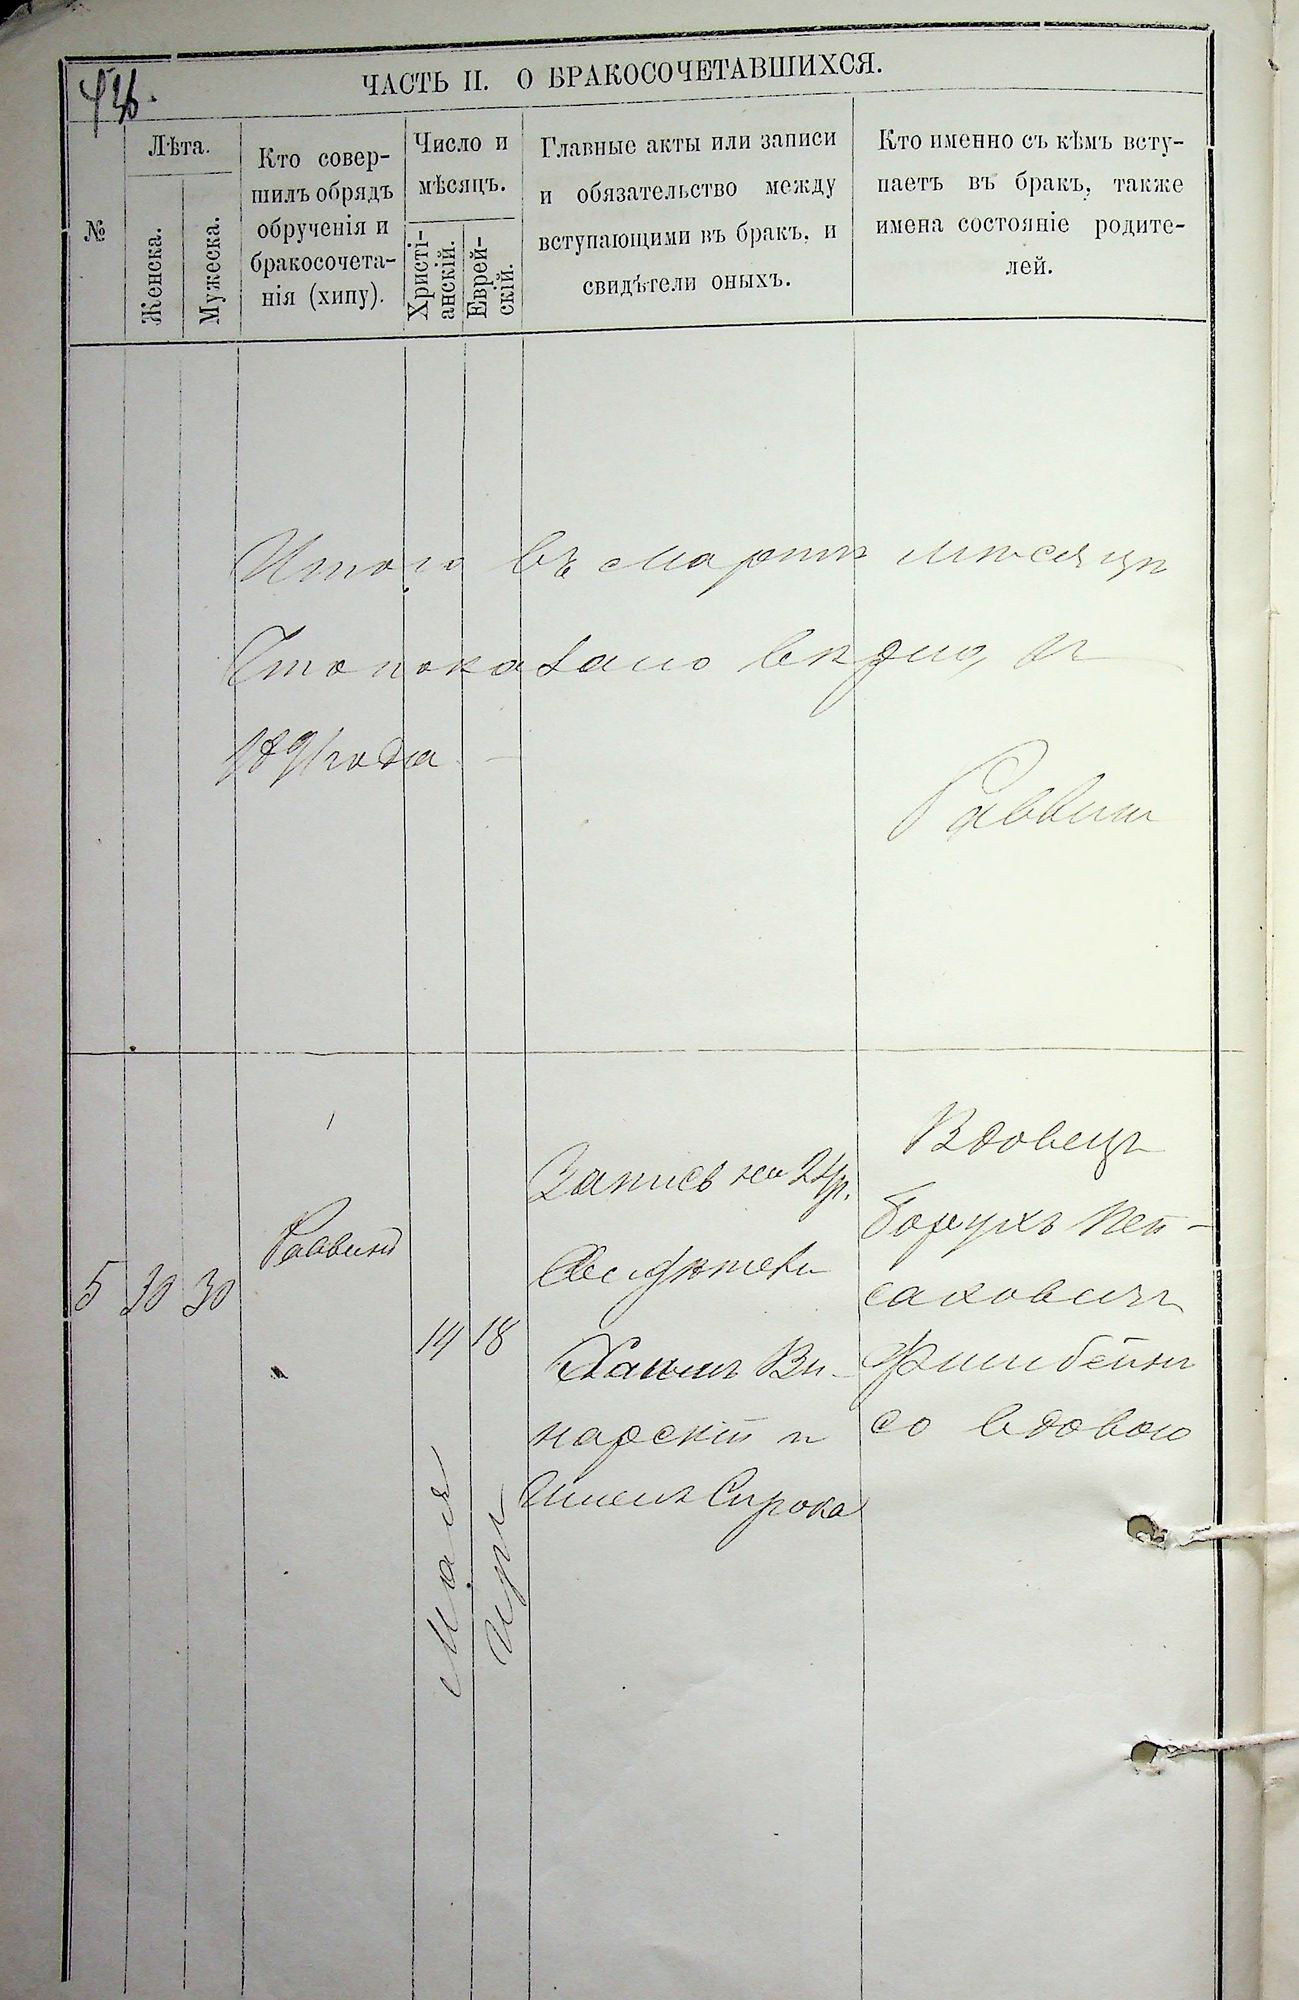 ЧАСТЬ II. О БРАКОСОЧЕТАВШИХСЯ.
№
Лѣта.
Женска.
Мужеска.
Кто совер-
шилъ обрядъ
обрученія и
бракосочета-
нія (хипу).
Число и
мѣсяцъ.
Христі-
анскій.
Еврей-
скій.
Главные акты или записи
и обязательство между
вступающими въ бракъ, и
свидѣтели оныхъ.
Кто именно съ кѣмъ всту-
паетъ въ бракъ, также
имена состояніе родите-
лей.
Итого въ мартѣ мѣсяцѣ
1891 года
Раввин
5
30
30
Раввинъ
14
Мая
18
Іяръ
Запись на 24р.
Свидѣтели
Хаимъ Ви-
нарскій и
Сирока
Вдовецъ
Борухъ Пей-
саховичъ
со вдовою